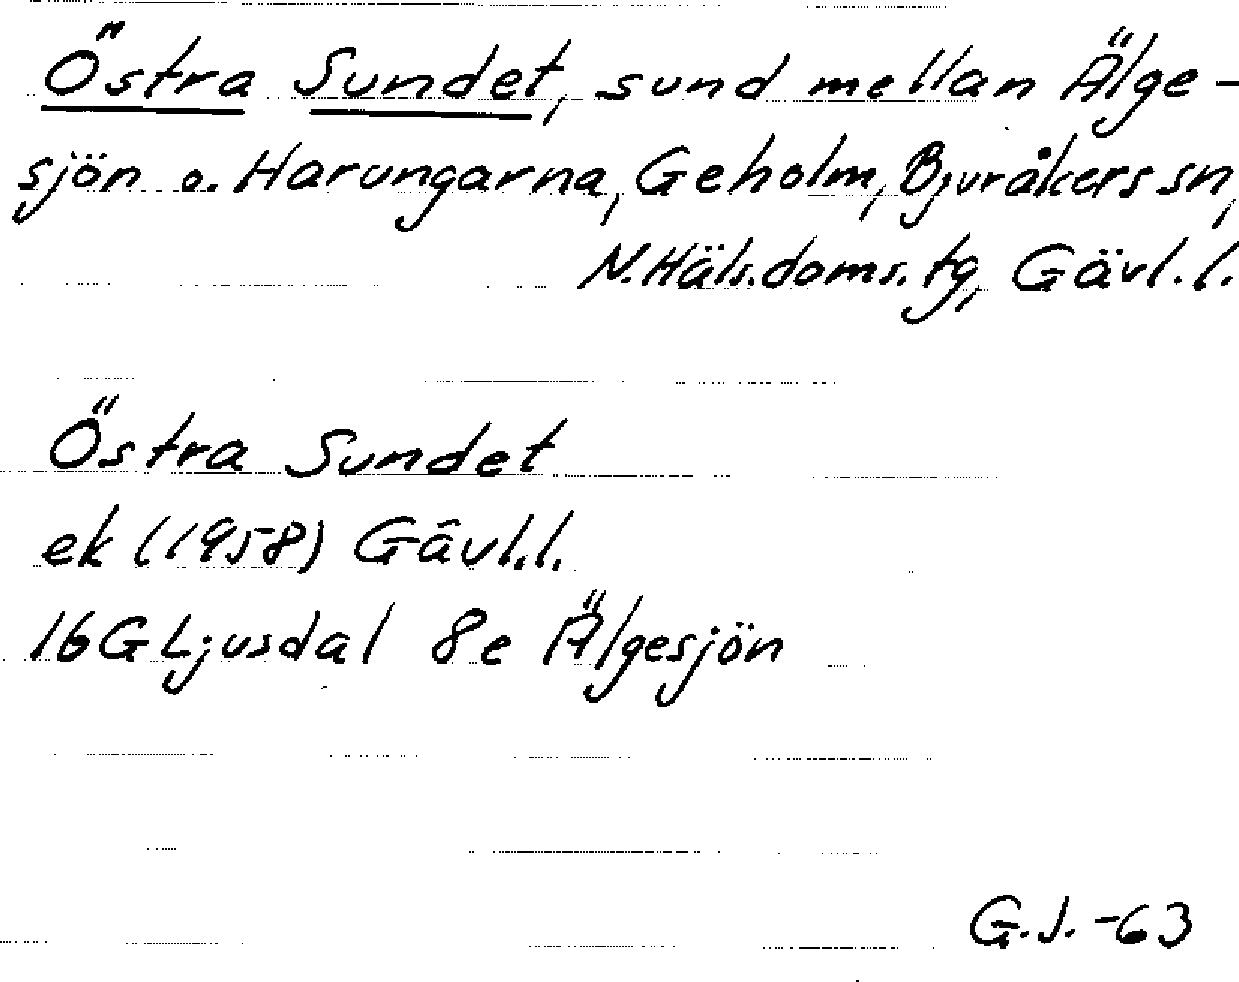 Östra Sundet, sund mellan Älge-
sjön o. Harungarna, Geholm, Bjuråkers sn,
N. Häls. doms. tg, Gävl. l.
Östra Sundet
ek (1958) Gävl. l.
16G Ljusdal 8e Älgesjön
G.J. -63